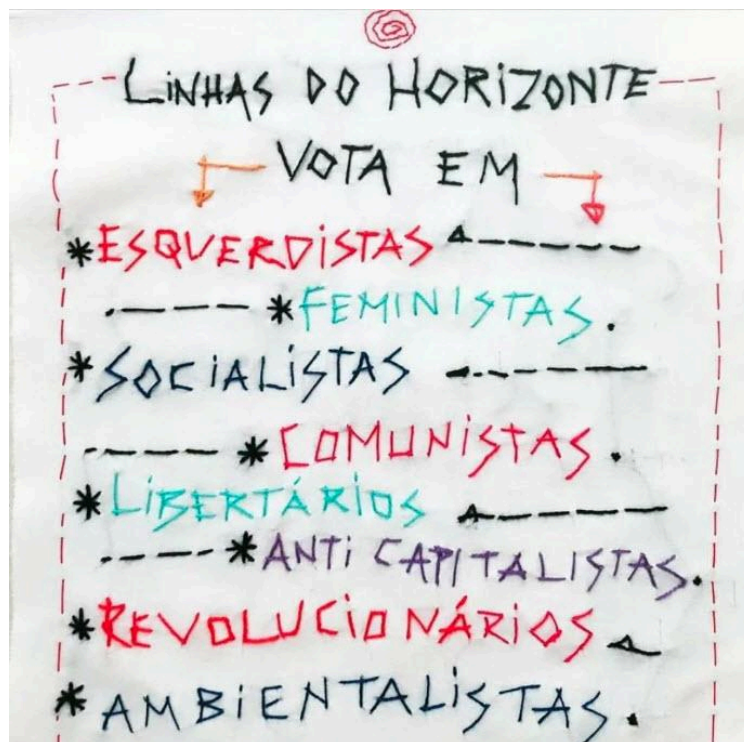 LiNHAS DO HORiZONTE
VOTA EM
*ESQUERDiSTAS
*FEMINISTAS.
*SOCiALiSTAS
*COMUNiSTAS.
*LiBERTÁRiOS
*ANTi CAPITALISTAS.
*REVOLUCiONÁRiOS
*AMBiENTALiSTAS.